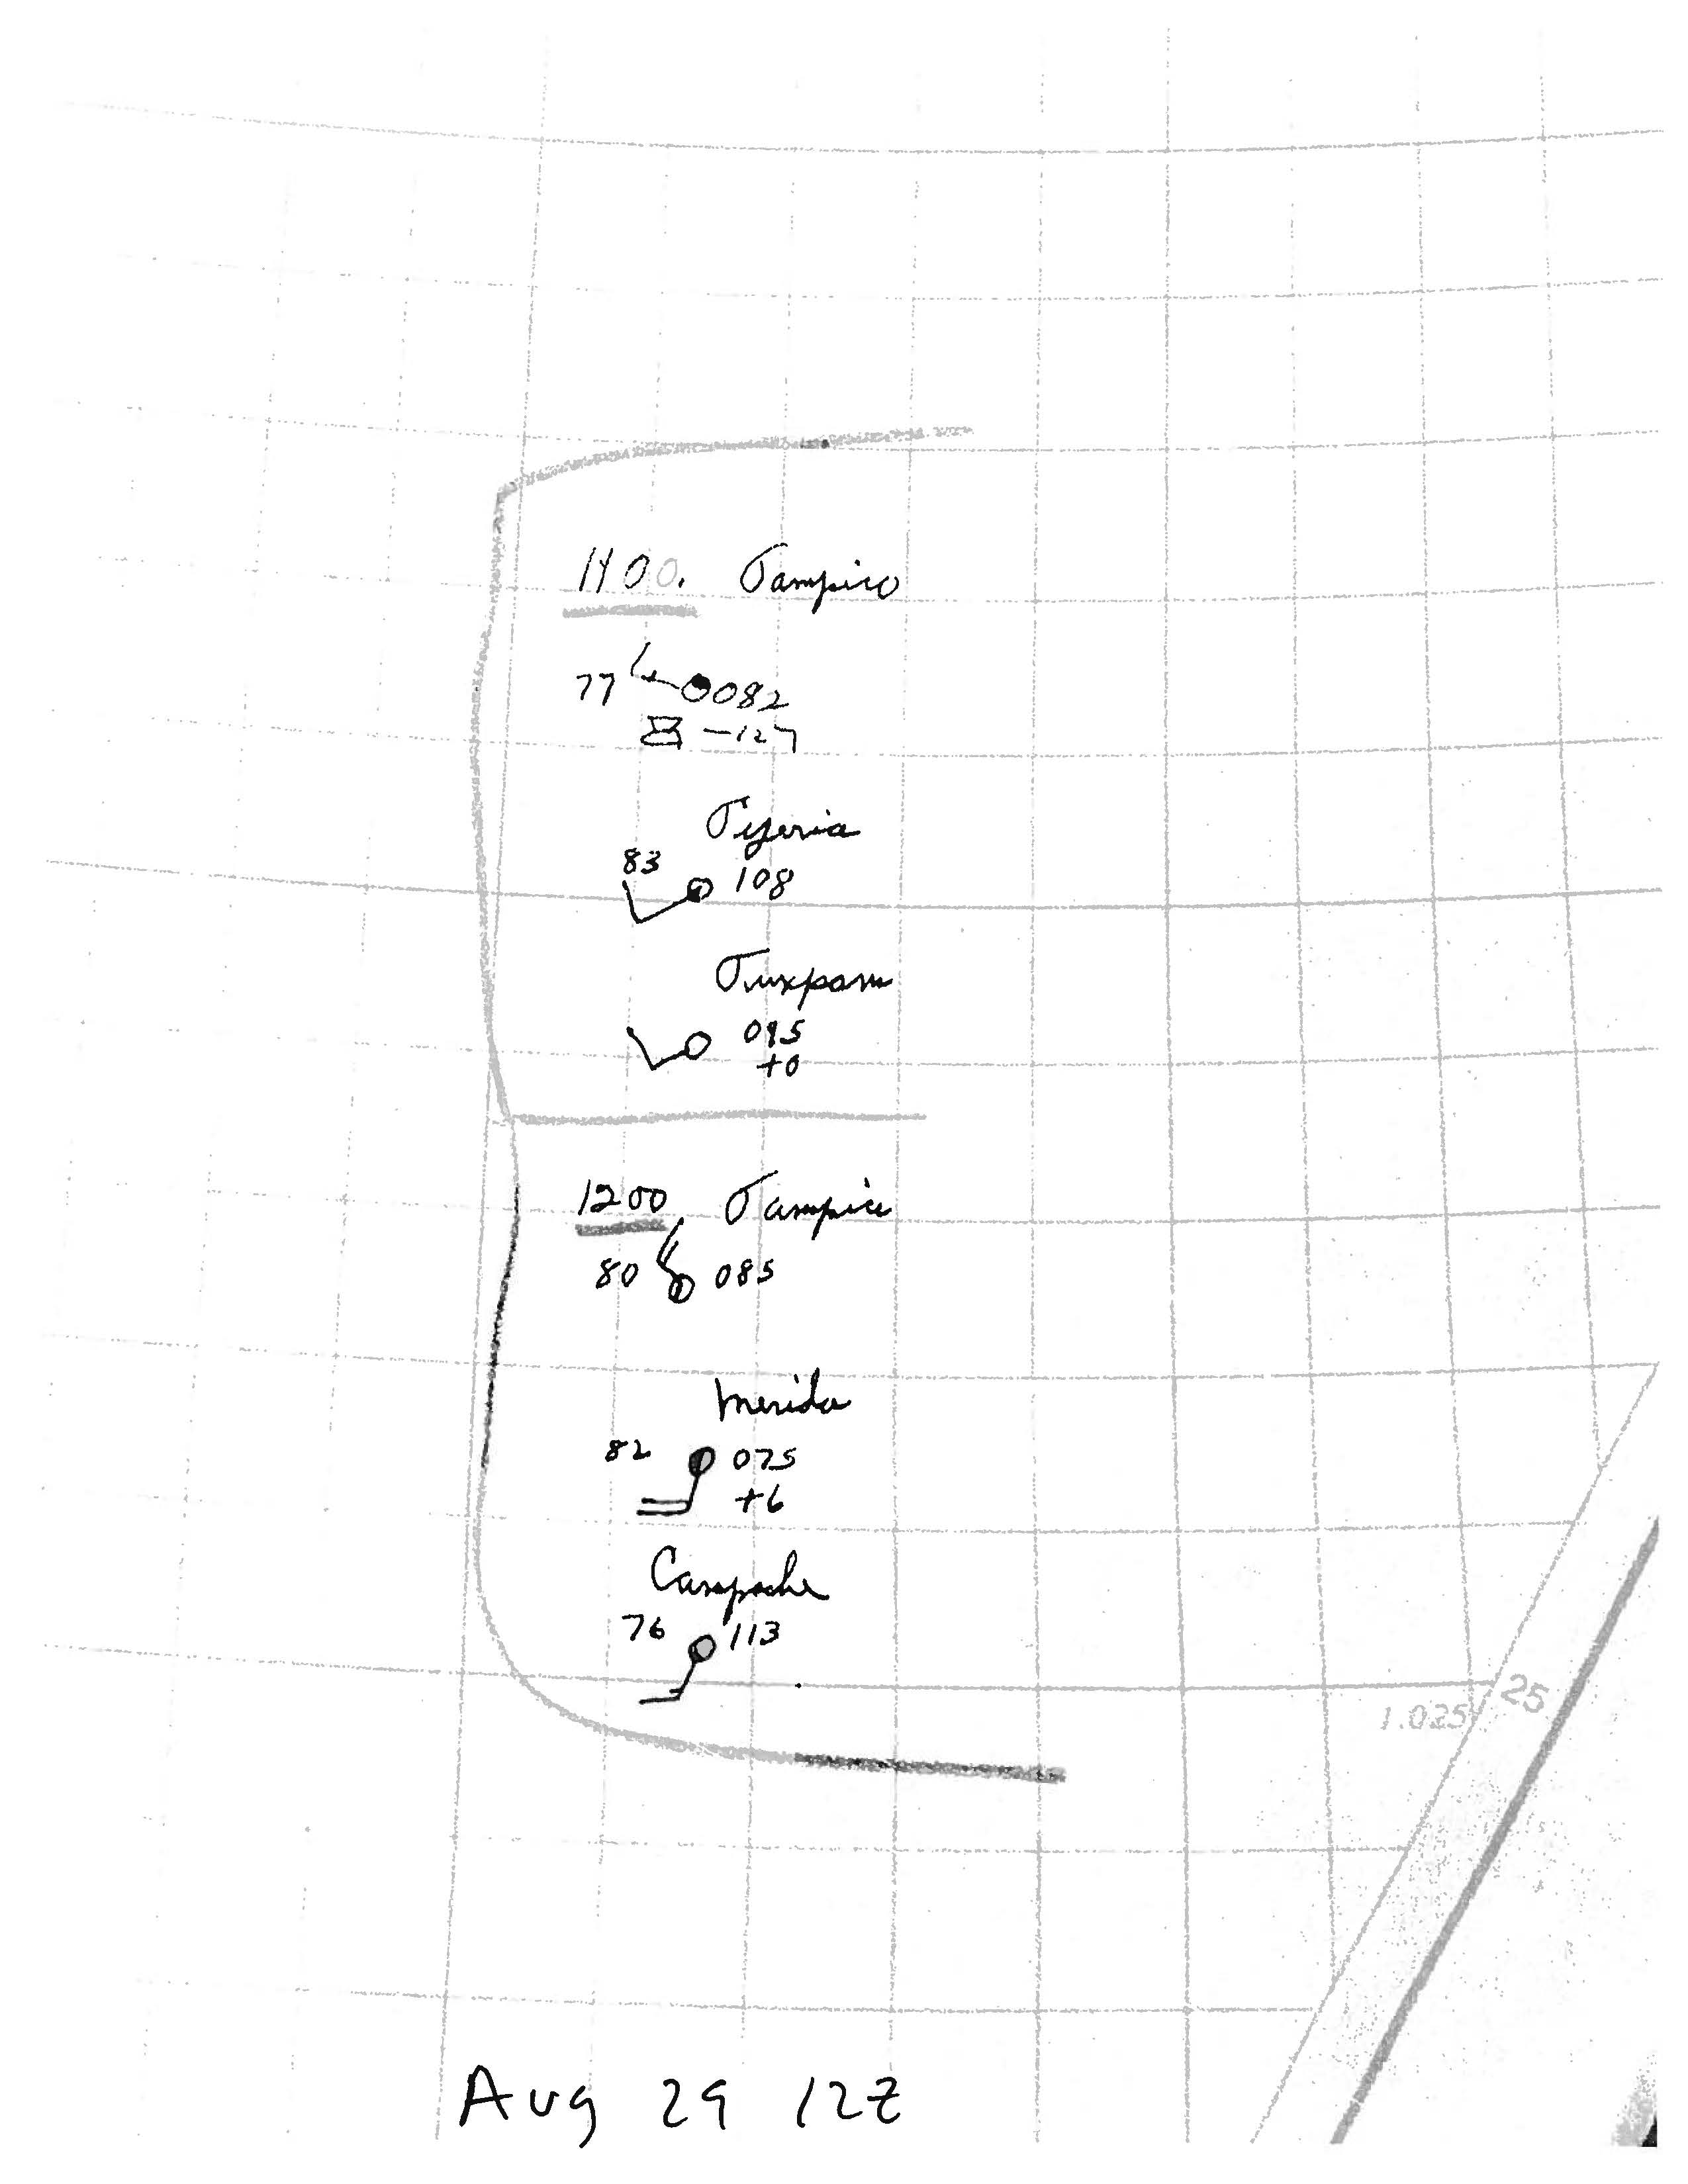 1400. Tampico
77 082
-127
Tejeria
83 108
Tuxpam
095
+0
1200 Tampico
80 085
Merida
82 075
+6
Campeche
76 113
25
1.025
Aug 29 12Z